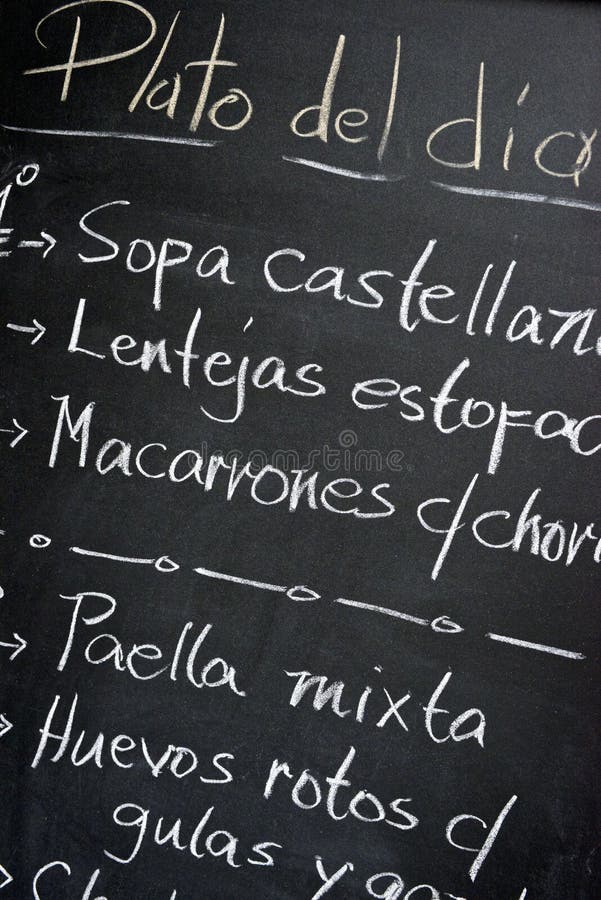 Plato del día
1º
→ Sopa castellan
→ Lentejas estofad
→ Macarrones c/chori
→ Paella mixta
→ Huevos rotos c/
gulas y
dreamstime